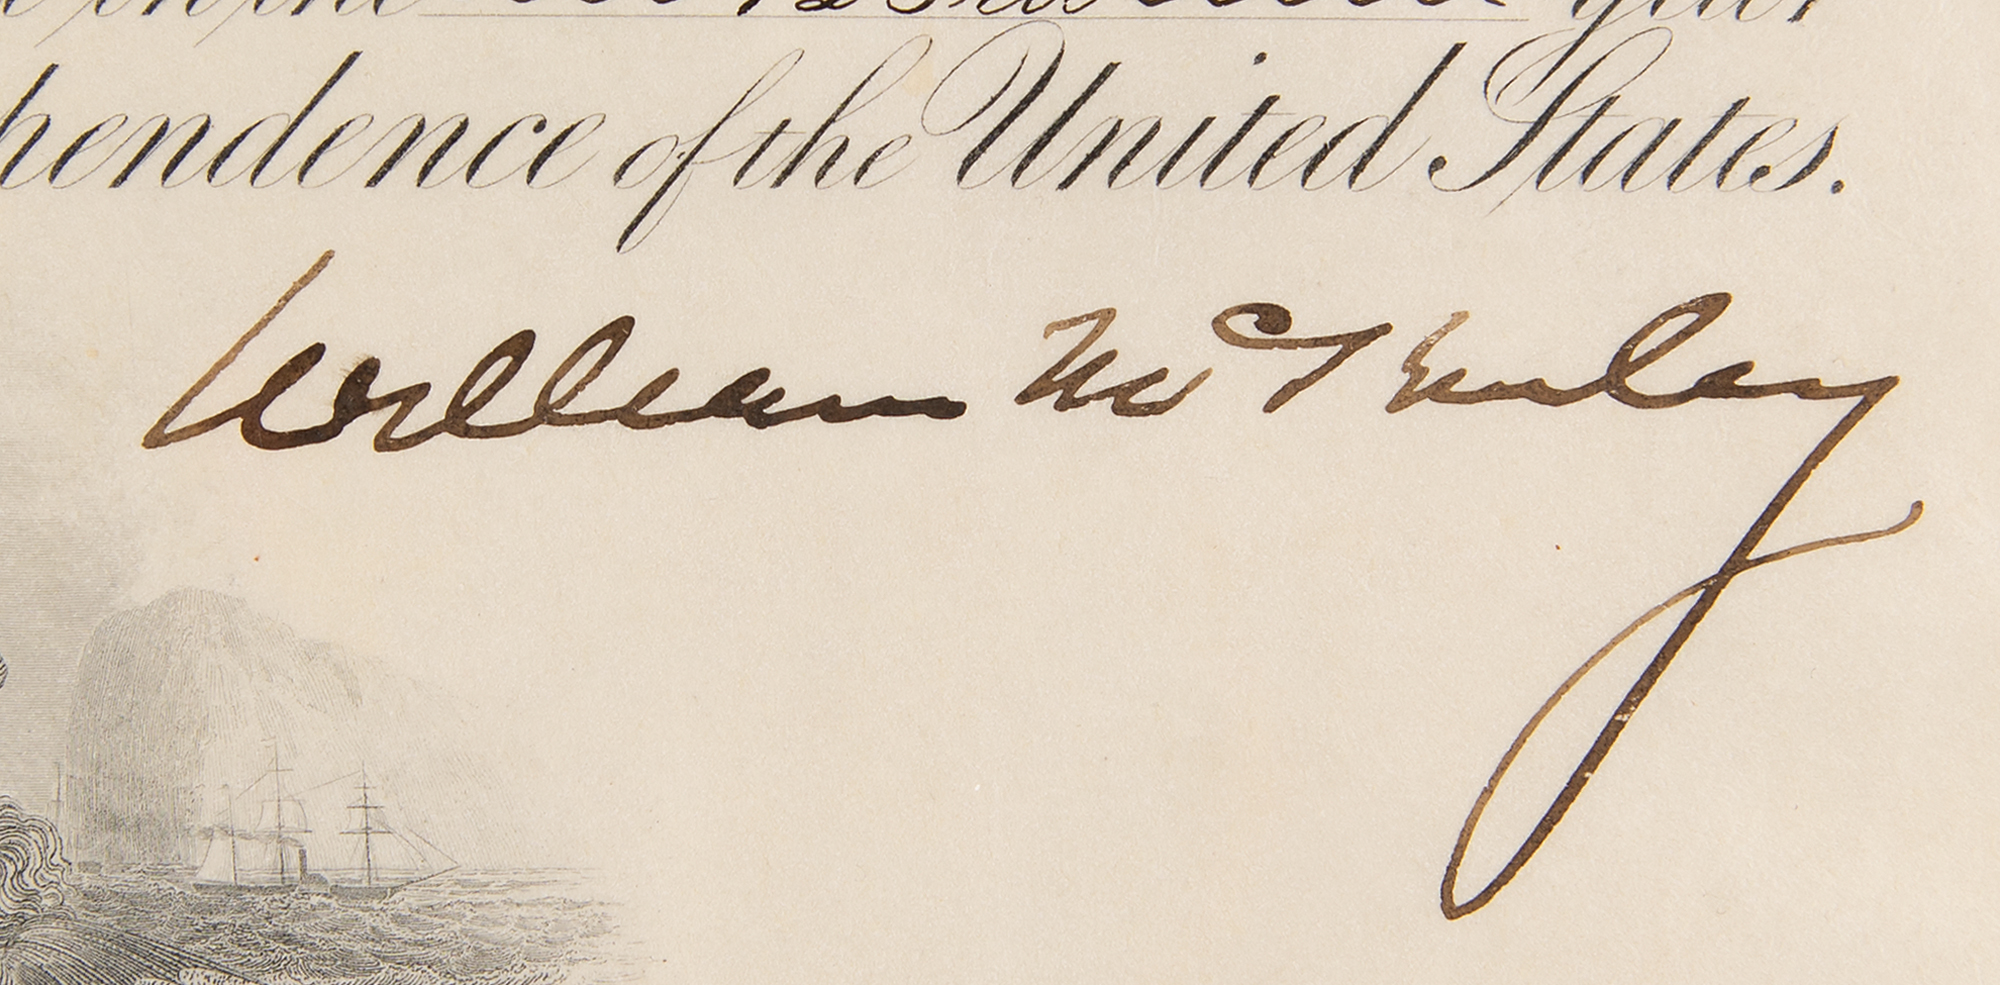 in the year
pendence of the United States.
William McKinley